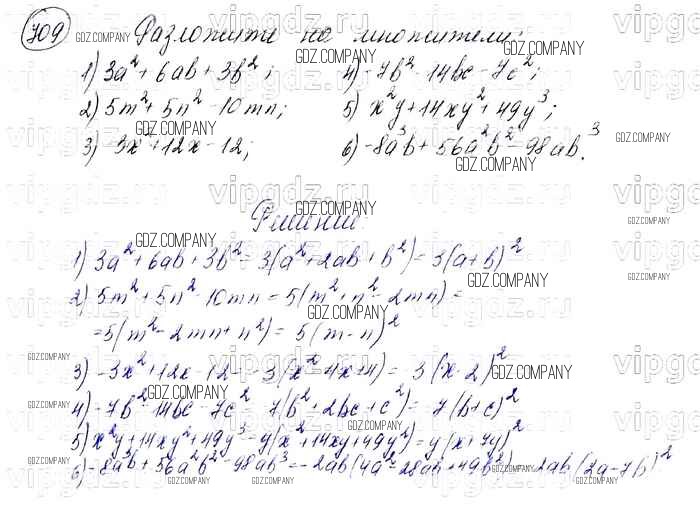 709 Разложите на множители:
1) 3a² + 6ab + 3b²; 4) -7b² - 14bc - 7c²;
2) 5m² + 5n² - 10mn; 5) x²y + 14xy² + 49y³;
3) -3x² + 12x - 12; 6) -8a³b + 56a²b² - 98ab³.
Решение
1) 3a² + 6ab + 3b² = 3(a² + 2ab + b²) = 3(a+b)²
2) 5m² + 5n² - 10mn = 5(m² + n² - 2mn) =
= 5(m² - 2mn + n²) = 5(m - n)²
3) -3x² + 12x - 12 = -3(x² - 4x + 4) = -3(x - 2)²
4) -7b² - 14bc - 7c² = -7(b² + 2bc + c²) = -7(b+c)²
5) x²y + 14xy² + 49y³ = y(x² + 14xy + 49y²) = y(x + 7y)²
6) -8a³b + 56a²b² - 98ab³ = -2ab(4a² - 28ab + 49b²) = -2ab(2a - 7b)²
GDZ.COMPANY
vipgdz.ru